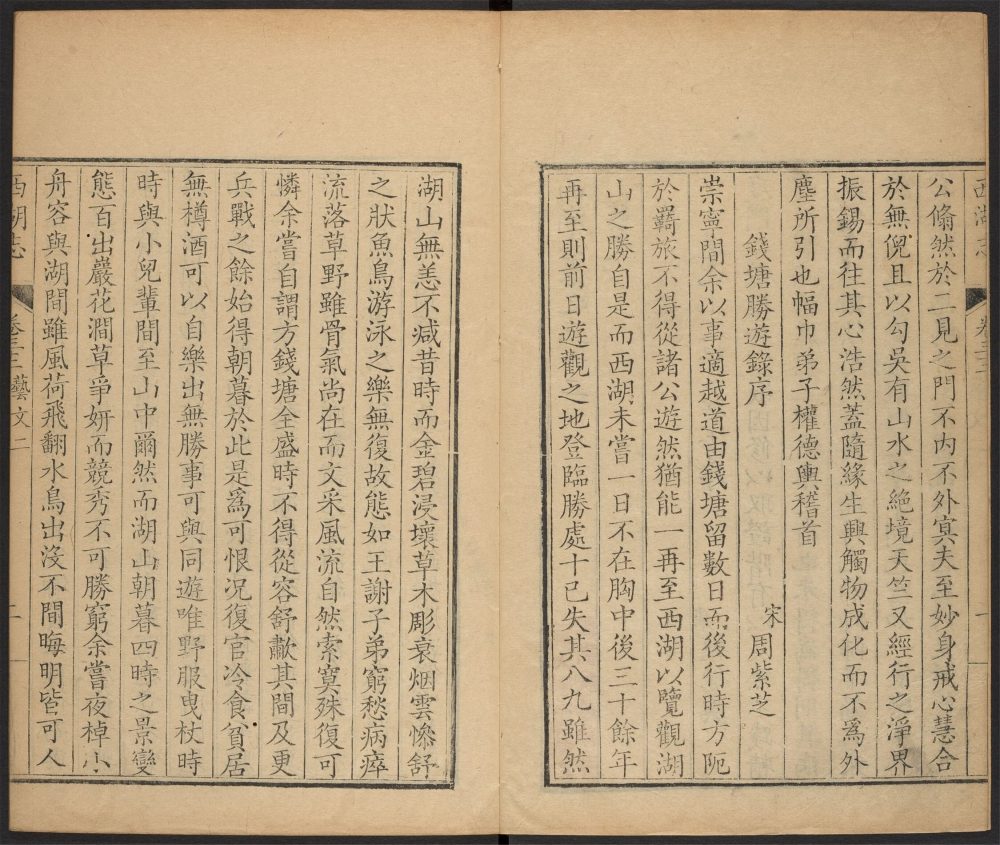 西湖志 卷三十三
公翛然於二見之門不內不外冥夫至妙身戒心慧合
於無倪且以勾吳有山水之絕境天竺又經行之淨界
振錫而往其心浩然蓋隨緣生興觸物成化而不爲外
塵所引也幅巾弟子權德輿稽首
錢塘勝遊錄序
宋 周紫芝
崇寧間余以事適越道由錢塘留數日而後行時方阨
於羇旅不得從諸公遊然猶能一再至西湖以覽觀湖
山之勝自是而西湖未嘗一日不在胸中後三十餘年
再至則前日遊觀之地登臨勝處十已失其八九雖然
湖山無恙不減昔時而金碧浸壞草木彫衰烟雲慘舒
之狀魚鳥游泳之樂無復故態如王謝子弟窮愁病瘁
流落草野雖骨氣尚在而文采風流自然索寞殊復可
憐余嘗自謂方錢塘全盛時不得從容舒歗其間及更
兵戰之餘始得朝暮於此是爲可恨況復官冷食貧居
無樽酒可以自樂出無勝事可與同遊唯野服曳杖時
時與小兒輩間至山中爾然而湖山朝暮四時之景變
態百出巖花澗草爭妍而競秀不可勝窮余嘗夜棹小
舟容與湖間雖風荷飛翻水鳥出沒不間晦明皆可人
西湖志 藝文二